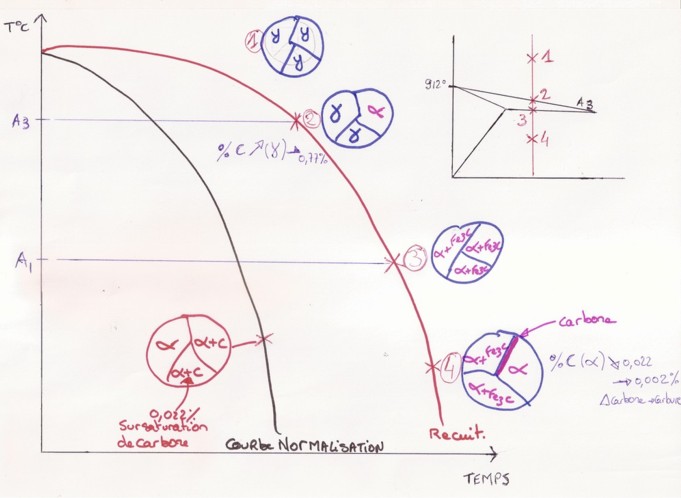 T°C
1
γ
γ
γ
A3
2
γ
α
γ
% C ↗ (γ) → 0,77%
A1
3
α+Fe3C
α+Fe3C
α+Fe3C
α
α+C
α+C
0,022%
Sursaturation
de carbone
4
α+Fe3C
α
α+Fe3C
carbone
% C (α) ↘ 0,022
→ 0,002%
Δ Carbone →
COURBE NORMALISATION
Recuit.
TEMPS
912°
1
2
A3
3
4